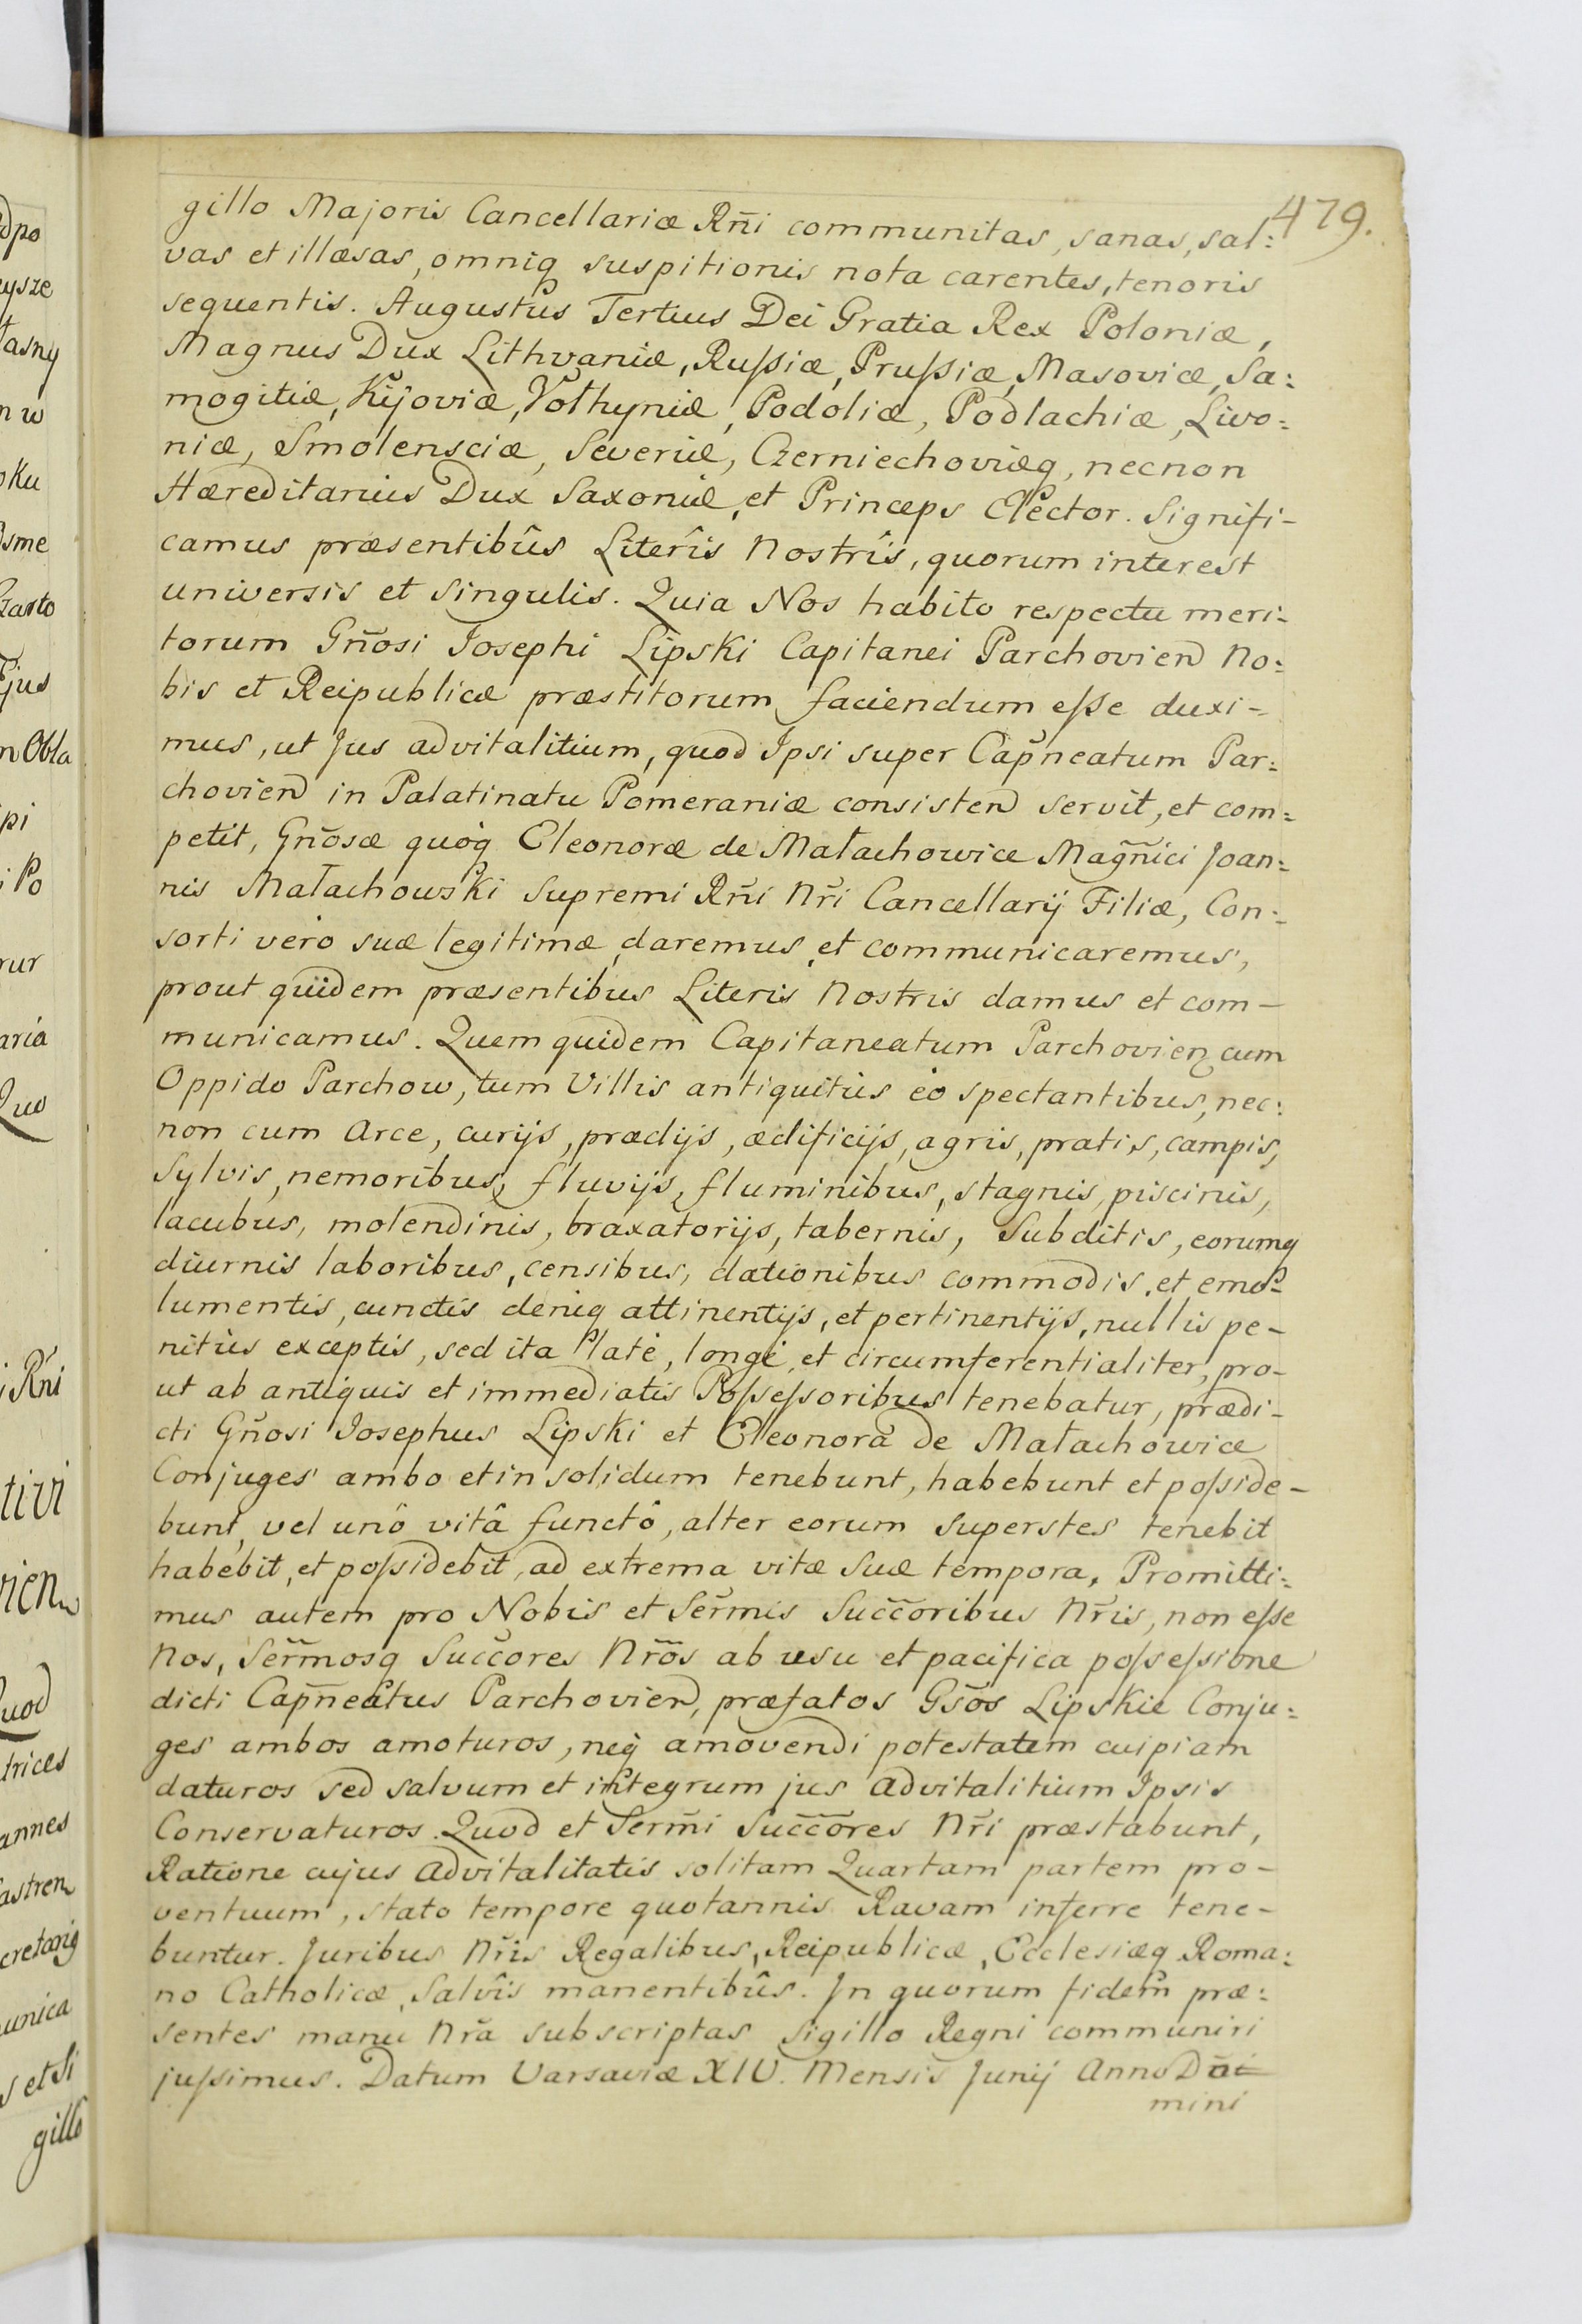 479.
gillo Majoris Cancellariæ Rn̄i communitas, sanas, sal:
vas et illæsas, omniq suspitionis nota carentes, tenoris
sequentis. Augustus Tertius Dei Gratia Rex Poloniæ,
Magnus Dux Lithvaniæ, Rußiæ, Prußiæ, Masoviæ, Sa:
mogitiæ, Kijoviæ, Volhyniæ, Podoliæ, Podlachiæ, Livo:
niæ, Smolensciæ, Severiæ, Czerniechoviæq, necnon
Hæreditarius Dux Saxoniæ, et Princeps Elector. Signifi-
camus præsentibûs Literîs Nostrîs, quorum interest
universis et singulis. Quia Nos habito respectu meri:
torum Gn̄osi Josephi Lipski Capitanei Parchovien No:
bis et Reipublicæ præstitorum faciendum eße duxi-
mus, ut Jus advitalitium, quod Ipsi super Capn̄eatum Par:
chovien in Palatinatu Pomeraniæ consisten servit, et com:
petit, Gn̄osæ quoq Eleonoræ de Małachowice Magn̄ici Joan:
nis Małachowski Supremi Rn̄i Nr̄i Cancellarij Filiæ, Con:
sorti verò suæ legitimæ daremus et communicaremus,
prout quidem præsentibus Literis Nostris damus et com-
municamus. Quem quidem Capitaneatum Parchovien cum
Oppido Parchow, tum Villis antiquitùs eò spectantibus, nec:
non cum Arce, curijs, prædijs, ædificijs, agris, pratis, campis,
Sylvis, nemoribus, fluvijs, fluminibus, stagnis, piscinis,
lacubus, molendinis, braxatorijs, tabernis, Subditis, eorumq
diurnis laboribus, censibus, dationibus commodis, et emo-
lumentis, cunctis deniq attinentijs, et pertinentijs, nullis pe-
nitùs exceptis, sed ita latè, longè, et circumferentialiter, pro-
ut ab antiquis et immediatis Poßeßoribus tenebatur, prædi-
cti Gn̄osi Josephus Lipski et Eleonora de Małachowice
Conjuges ambo et in solidum tenebunt, habebunt et poßide-
bunt, vel unô vitâ functô, alter eorum superstes tenebit
habebit, et poßidebit, ad extrema vitæ Suæ tempora, Promitti:
mus autem pro Nobis et Serm̄is Succ̄oribus Nr̄is, non eße
Nos, Serm̄osq Succ̄ores Nr̄os ab usu et pacifica poßeßione
dicti Capn̄eatus Parchovien, præfatos Gs̄os Lipskie Conju:
ges ambos amoturos, neq amovendi potestatem cuipiam
daturos sed salvum et integrum jus advitalitium Ipsis
Conservaturos. Quod et Serm̄i Succ̄ores Nr̄i præstabunt,
Ratione cujus advitalitatis solitam Quartam partem pro-
ventuum, stato tempore quotannis Ravam inferre tene-
buntur. Juribus Nr̄is Regalibus, Reipublicæ, Ecclesiæq Roma:
no Catholicæ, Salvîs manentibûs. In quorum fidem præ:
sentes manu Nr̄a subscriptas Sigillo Regni communiri
jußimus. Datum Varsaviæ XIV. Mensis Junij Anno Do
mini